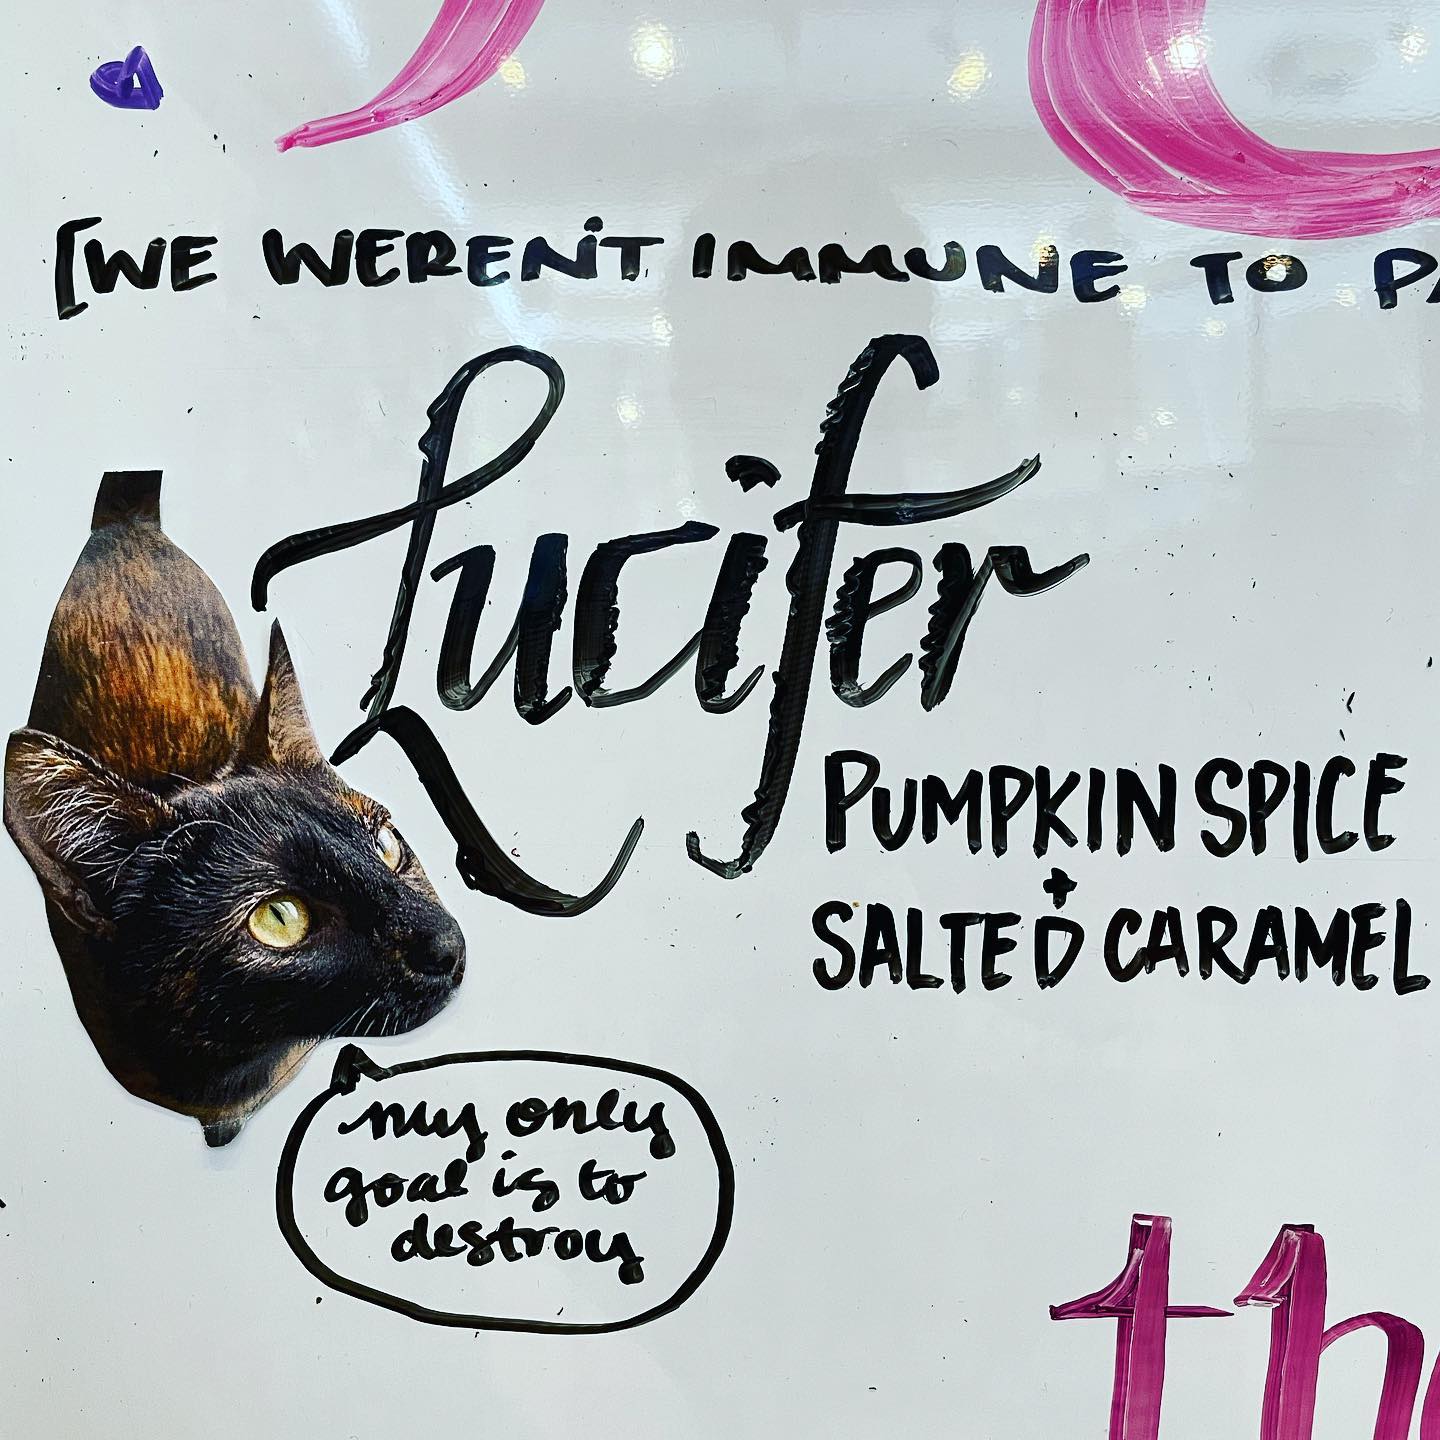 [WE WEREN'T IMMUNE TO
Lucifer
PUMPKIN SPICE
+
SALTED CARAMEL
my only
goal is to
destroy
th